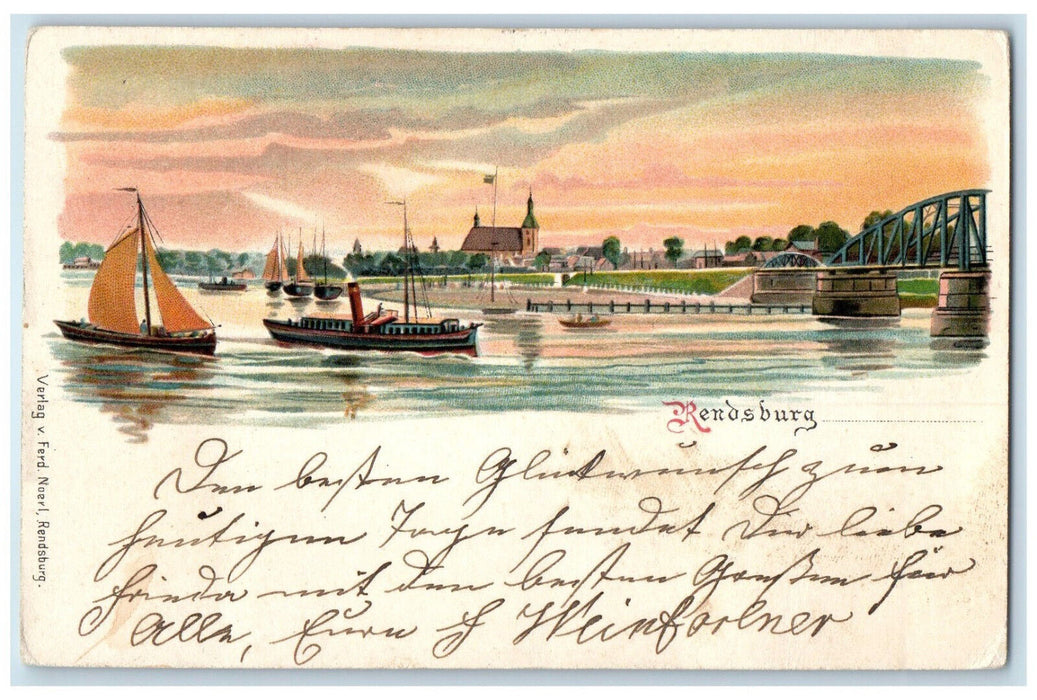 Rendsburg
Den besten Glückwunsch zum
heutigen Tage sendet Dir liebe
Frieda mit den besten Grüßen für
Alle, Eure
Verlag v. Ferd. Noerl, Rendsburg.